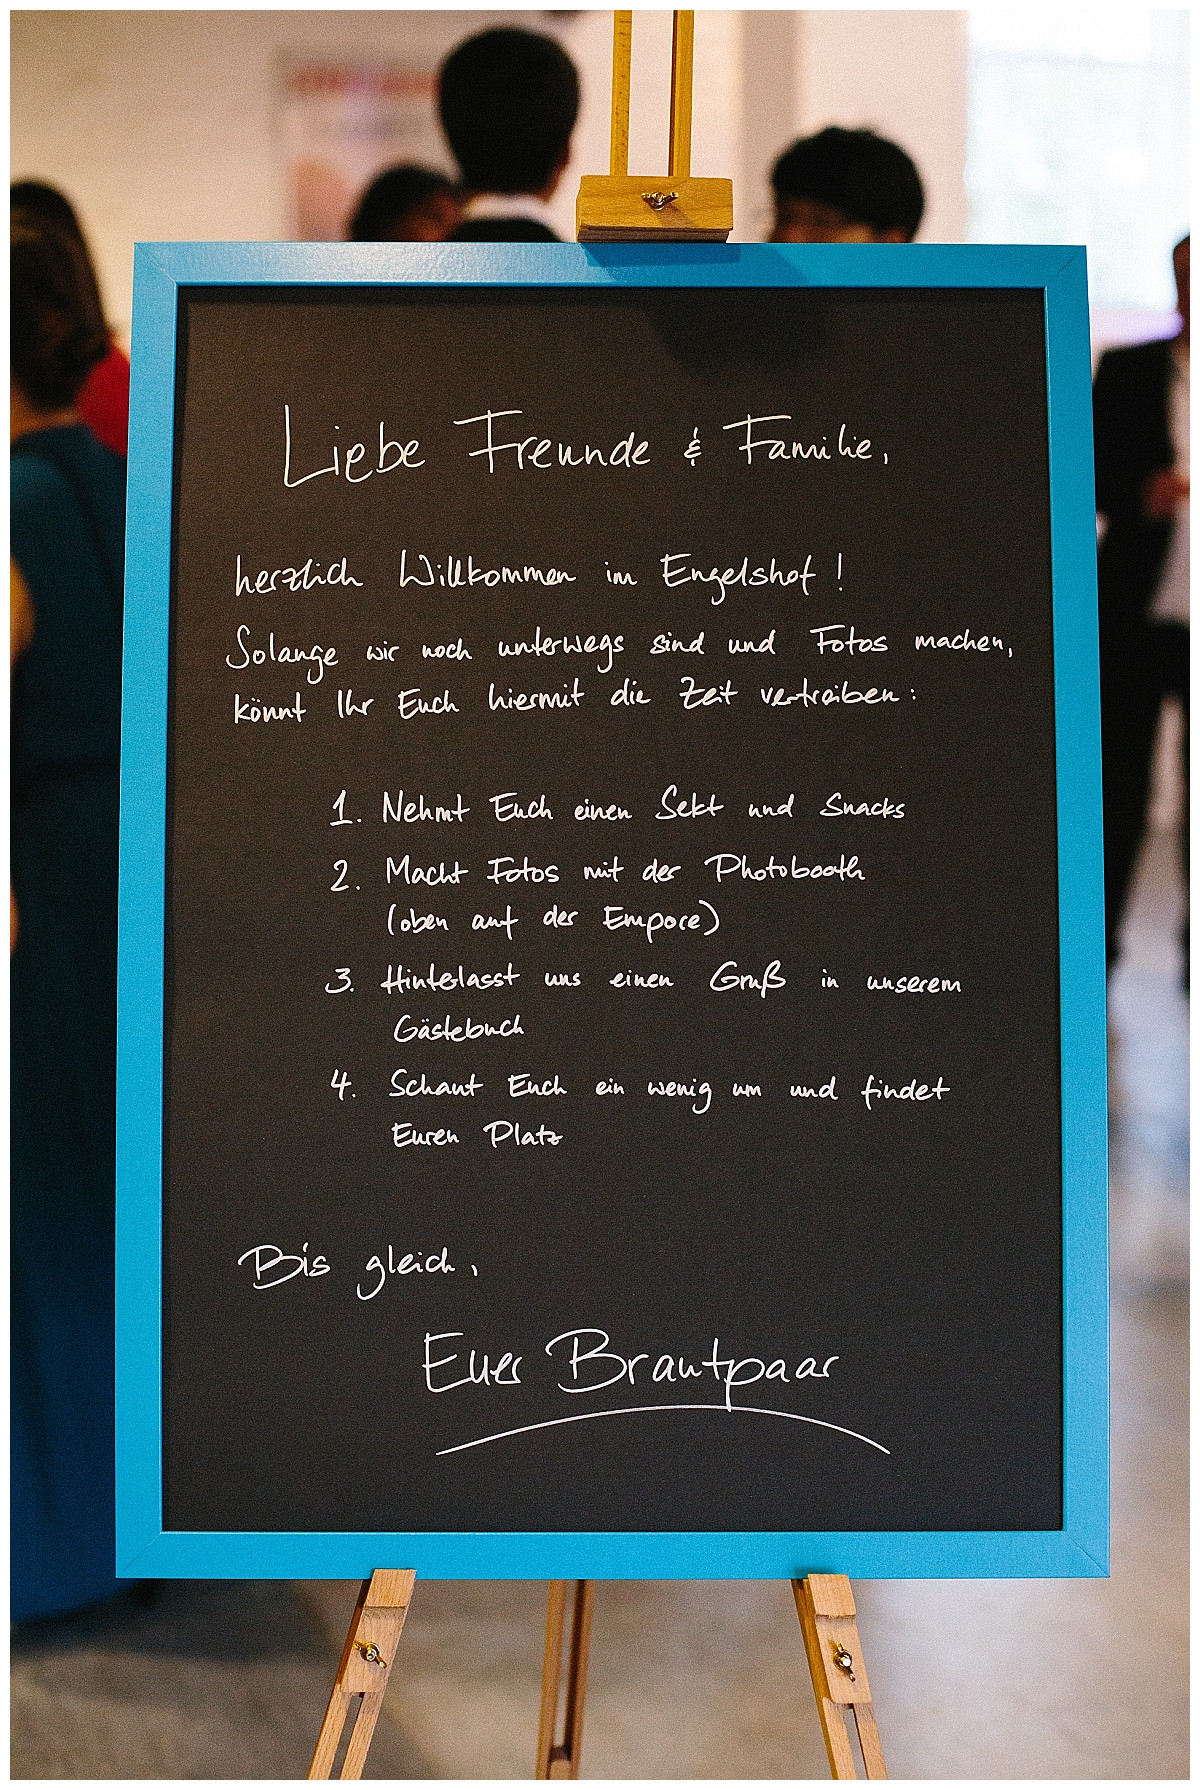 Liebe Freunde & Familie,
herzlich Willkommen im Engelshof!
Solange wir noch unterwegs sind und Fotos machen,
könnt Ihr Euch hiermit die Zeit vertreiben:
1. Nehmt Euch einen Sekt und Snacks
2. Macht Fotos mit der Photobooth
(oben auf der Empore)
3. Hinterlasst uns einen Gruß in unserem
Gästebuch
4. Schaut Euch ein wenig um und findet
Euren Platz
Bis gleich,
Euer Brautpaar